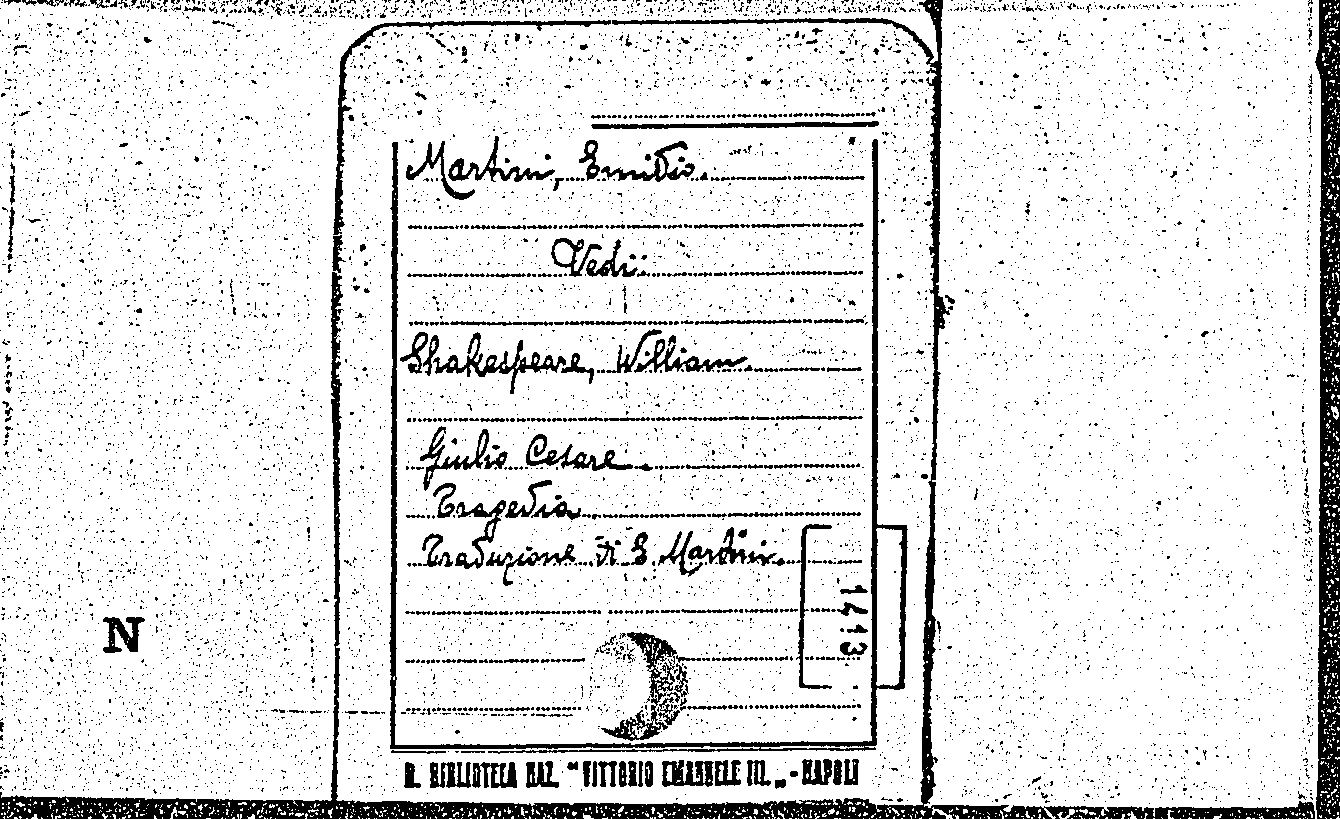 Martini, Emidio.
Vedi:
Shakespeare, William.
Giulio Cesare.
Tragedia
Traduzione di E. Martini.
1413
N
R. BIBLIOTECA NAZ. “VITTORIO EMANUELE III„ - NAPOLI